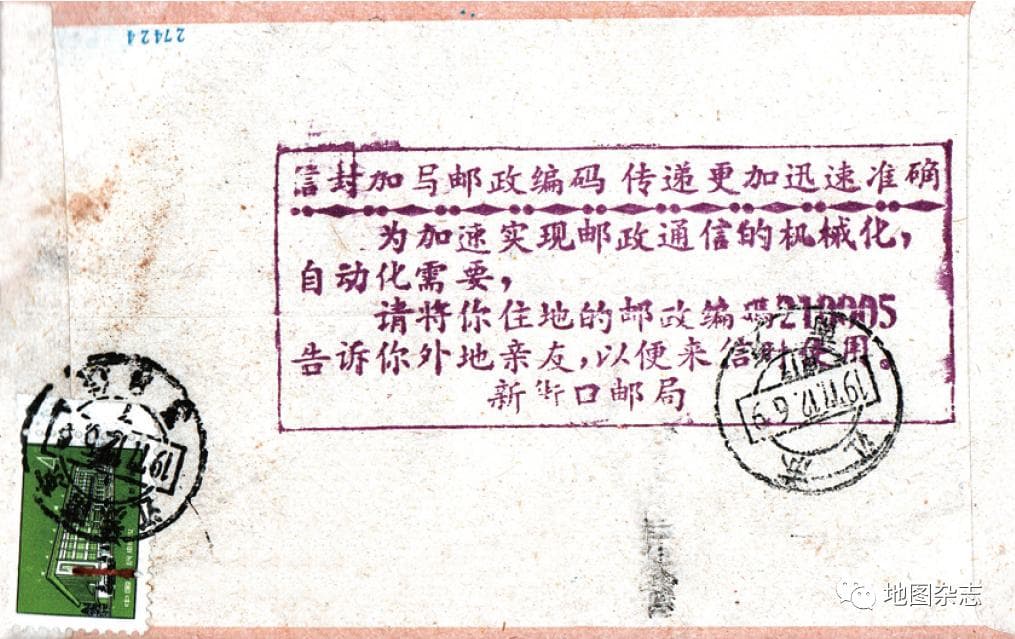 27424
信封加写邮政编码 传递更加迅速准确
为加速实现邮政通信的机械化，
自动化需要，
请将你住地的邮政编码210005
告诉你外地亲友，以便来信时使用。
新街口邮局
地图杂志